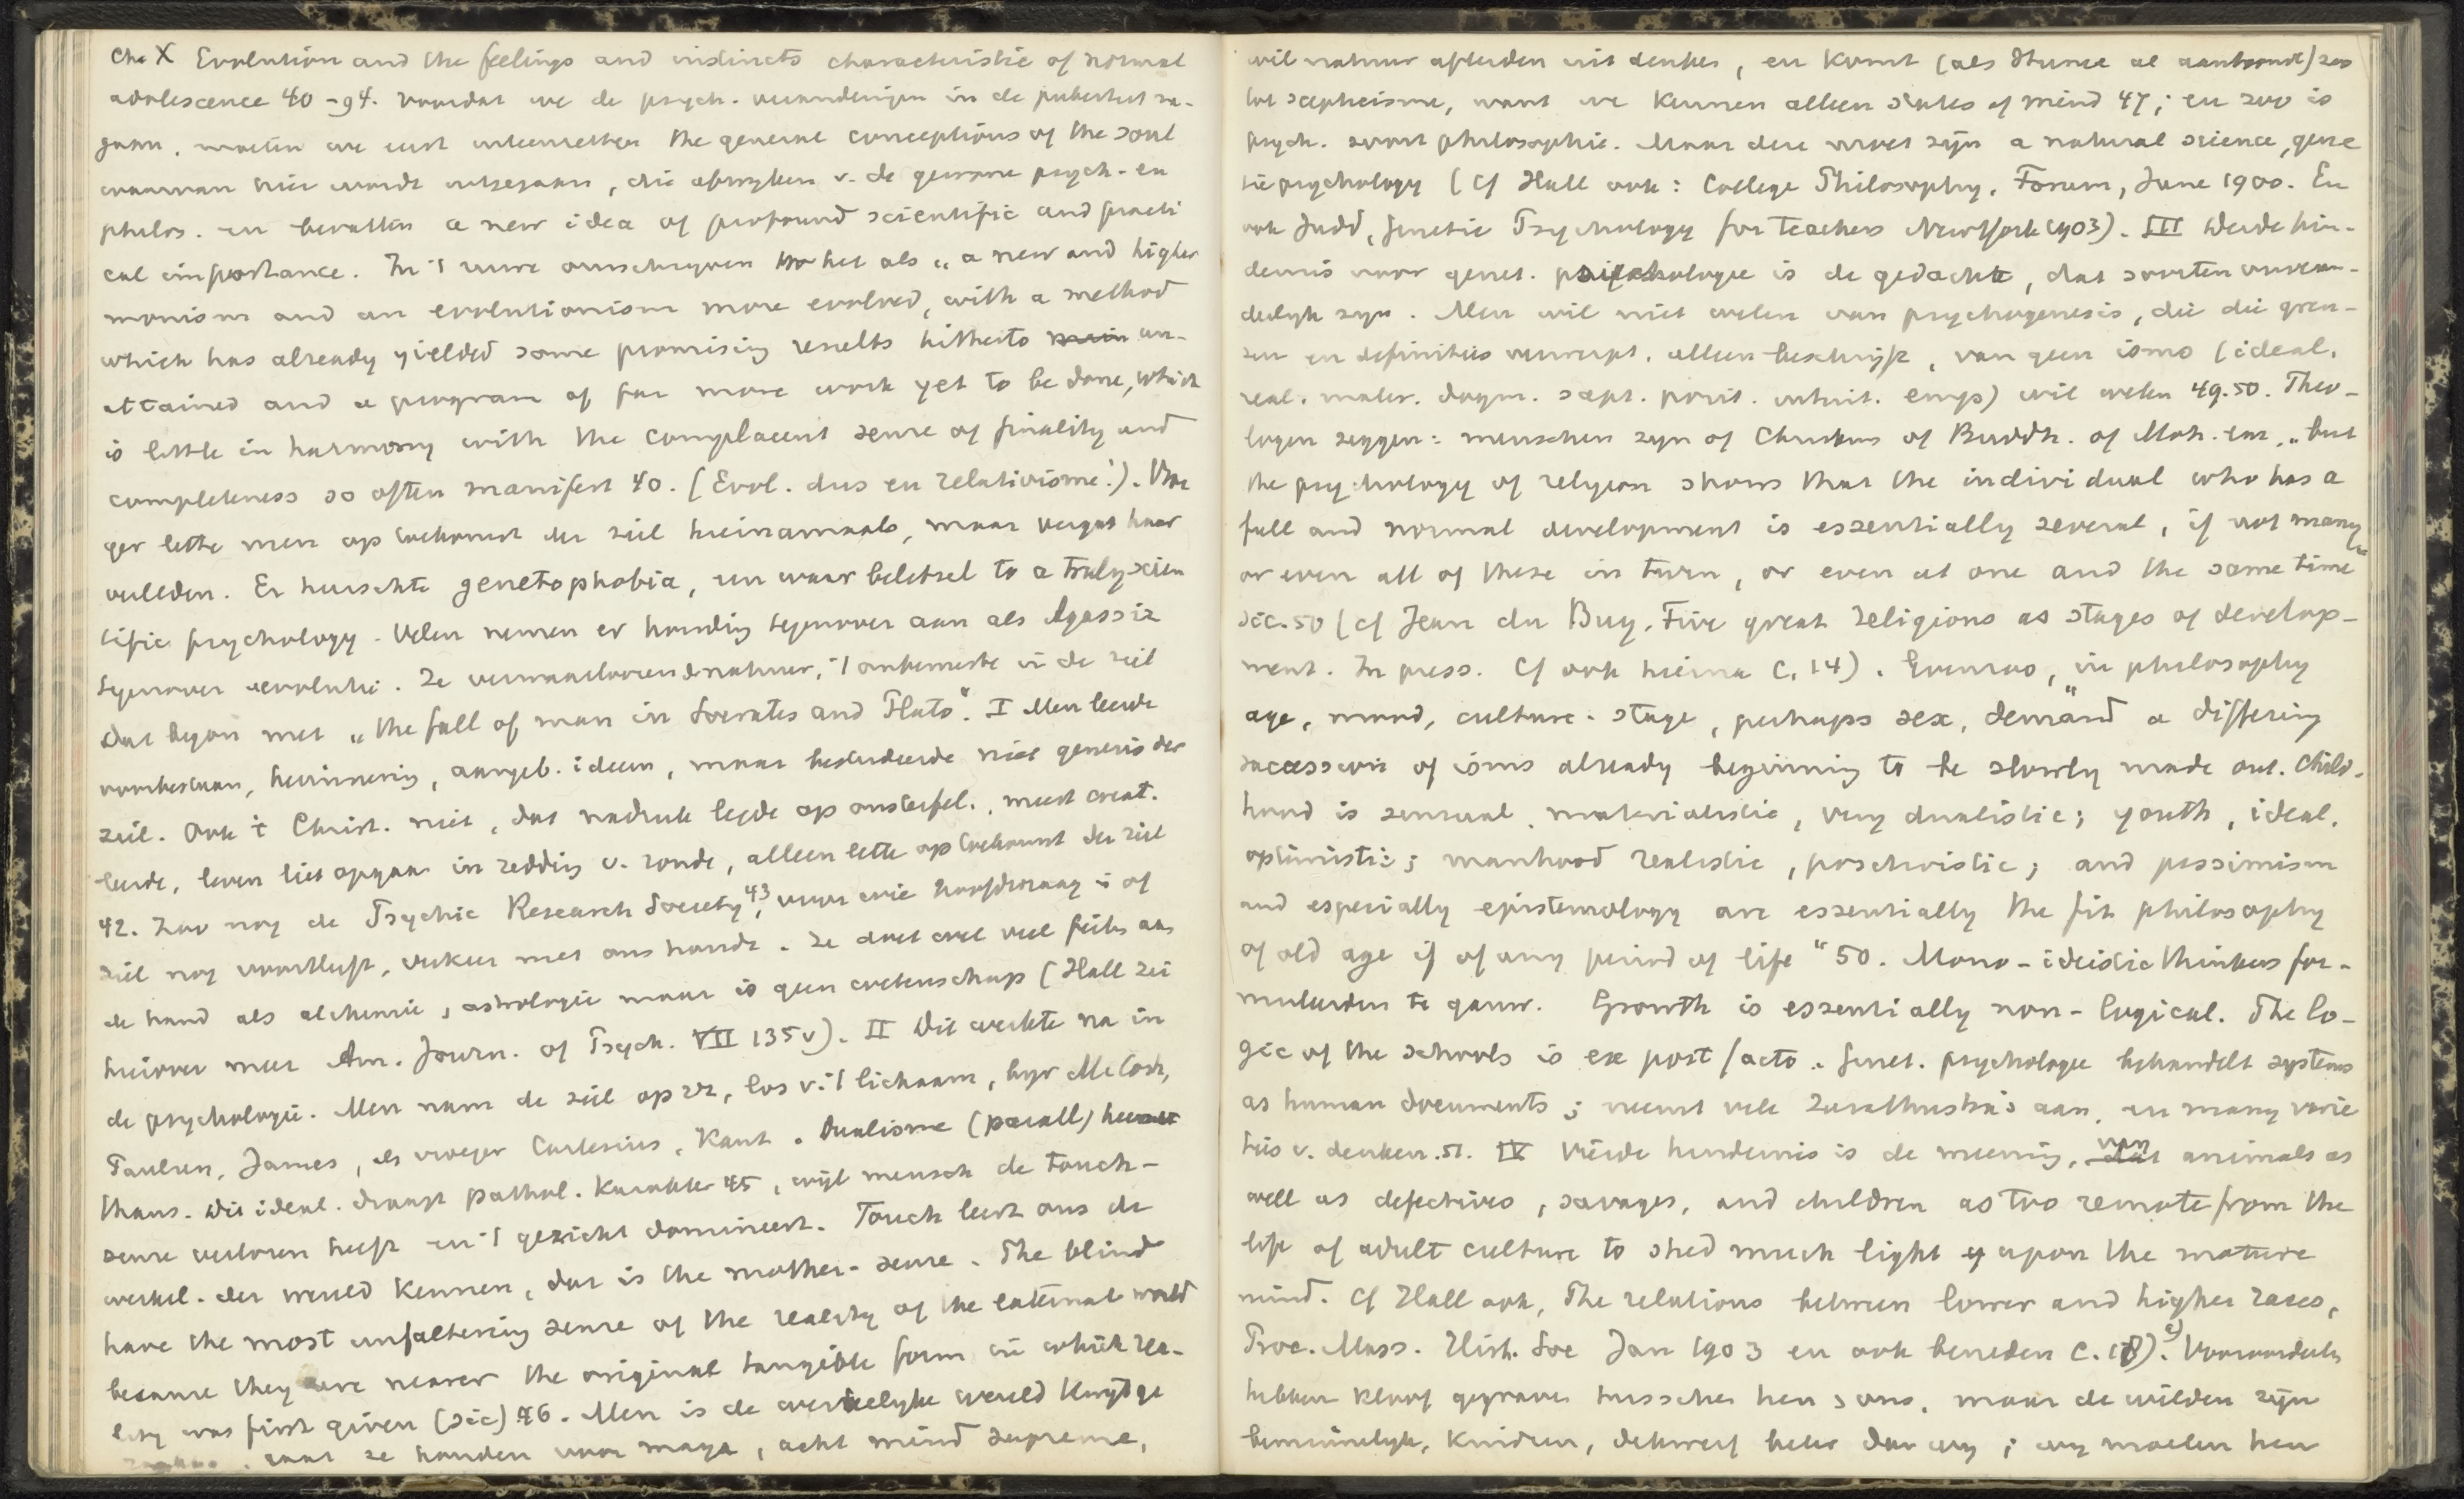 Ch. X Evolution and the feelings and instincts characteristic of normal
adolescence 40-94. Voordat we de psych. veranderingen in de puberteit na-
gaan, moeten we eerst uiteenzetten the general conceptions of the soul
waarvan hier wordt uitgegaan, die afwyken v. de gewone psych- en
philos. en bevatten a new idea of profound scientific and practi
cal importance. In 't ruwe omschryven we het als „a new and higher
monism and an evolutionism more evolved, with a method
which has already yielded some promising results hitherto un-
attained and a program of far more work yet to be done, which
is little in harmony with the complacent sense of finality and
completeness so often manifest 40. (Evol. dus en relativisme!). Vroe
ger lette men op toekomst der ziel hiernamaals, maar vergat haar
verleden. Er heerschte genetophobia, een waar beletsel to a truly scien
tific psychology. Velen nemen er houding tegenover aan als Agassiz
tegenover evolutie. Ze verwaarloozen de natuur, 't onbewuste in de ziel
dat begon met „the fall of man in Socrates and Plato". I Men leerde
voorbestaan, herinnering, aangeb. ideen, maar bestudeerde niet genesis der
ziel. Ook 't Christ. niet, dat nadruk legde op onsterfel., meest creat.
leerde, leven liet opgaan in redding v. zonde, alleen lette op toekomst der ziel
42. Zoo nog de Psychic Research Society 43, voor wie hoofdvraag is of
ziel nog voortleeft, verkeer met ons houdt. Ze doet wel veel feiten aan
de hand als alchemie, astrologie maar is geen wetenschap (Hall zei
hierover meer Am. Journ. of Psych. VII 135v). II Dit werkte na in
de psychologie. Men nam de ziel op zz, los v. 't lichaam, byv McCosh,
Paulsen, James, als vroeger Cartesius, Kant. Dualisme (parall) heerscht
thans. Dit ideal. draagt pathol. karakter 45, wijl mensch de touch-
sense verloren heeft en 't gezicht domineert. Touch leert ons de
werkel. der wereld kennen, dat is the mother-sense. The blind
have the most unfaltering sense of the reality of the external world
because they are nearer the original tangible form in which rea-
lity was first given (sic) 46. Men is de werkelyke wereld kwijt ge
raakt, ze houden voor maya, acht mind supreme,
wil natuur afleiden uit denken, en komt (als Hume al aantoont) zoo
tot scepticisme, want we kennen alleen states of mind 47; en zoo is
psych. soort philosophie. Maar deze moet zijn a natural science, gene
tic psychology (Cf Hall ook: College Philosophy, Forum, June 1900. En
ook Judd, Genetic Psychology for Teachers NewYork 1903). III Derde hin-
dernis voor genet. psychologie is de gedachte, dat soorten onveran-
derlyk zyn. Men wil niet weten van psychogenesis, die die gren-
zen en definities verwerpt, alleen beschryft, van geen isme (ideal.
real. mater. dogm. scept. posit. intuit. emp) wil weten 49.50. Theo-
logen zeggen: menschen zyn of Christens of Buddh. of Moh. enz, „but
the psychology of religion shows that the individual who has a
full and normal development is essentially several, if not many
or even all of these in turn, or even at one and the same time"
sic. 50 (cf Jean du Buy, Five great religions as stages of develop-
ment. In press. Cf ook hierna C. 14). Evenzoo, in philosophy
„age, mood, culture-stage, perhaps sex, demand a differing
succession of isms already beginning to be slowly made out. Child-
hood is sensual, materialistic, very dualistic; youth, ideal.
optimistic; manhood realistic, positivistic; and pessimism
and especially epistemology are essentially the fit philosophy
of old age if of any period of life" 50. Mono-ideistic thinkers for-
muleerden te gauw. Growth is essentially non-logical. The lo-
gic of the schools is ex post facto. Genet. psychologie behandelt systems
as human documents; neemt vele Zarathustra's aan, en many varie
ties v. denken. 51. IV Vierde hindernis is de meening, van animals as
well as defectives, savages, and children as too remote from the
life of adult culture to shed much light upon the mature
mind. Cf Hall ook, The relations between lower and higher races,
Proc. Mass. Hist. Soc Jan 1903 en ook beneden C. 18). Vooroordeelen
hebben kloof gegraven tusschen hen & ons, maar de wilden zijn
beminnelyk, kinderen, dikwerf beter dan wy; wy moeten hen